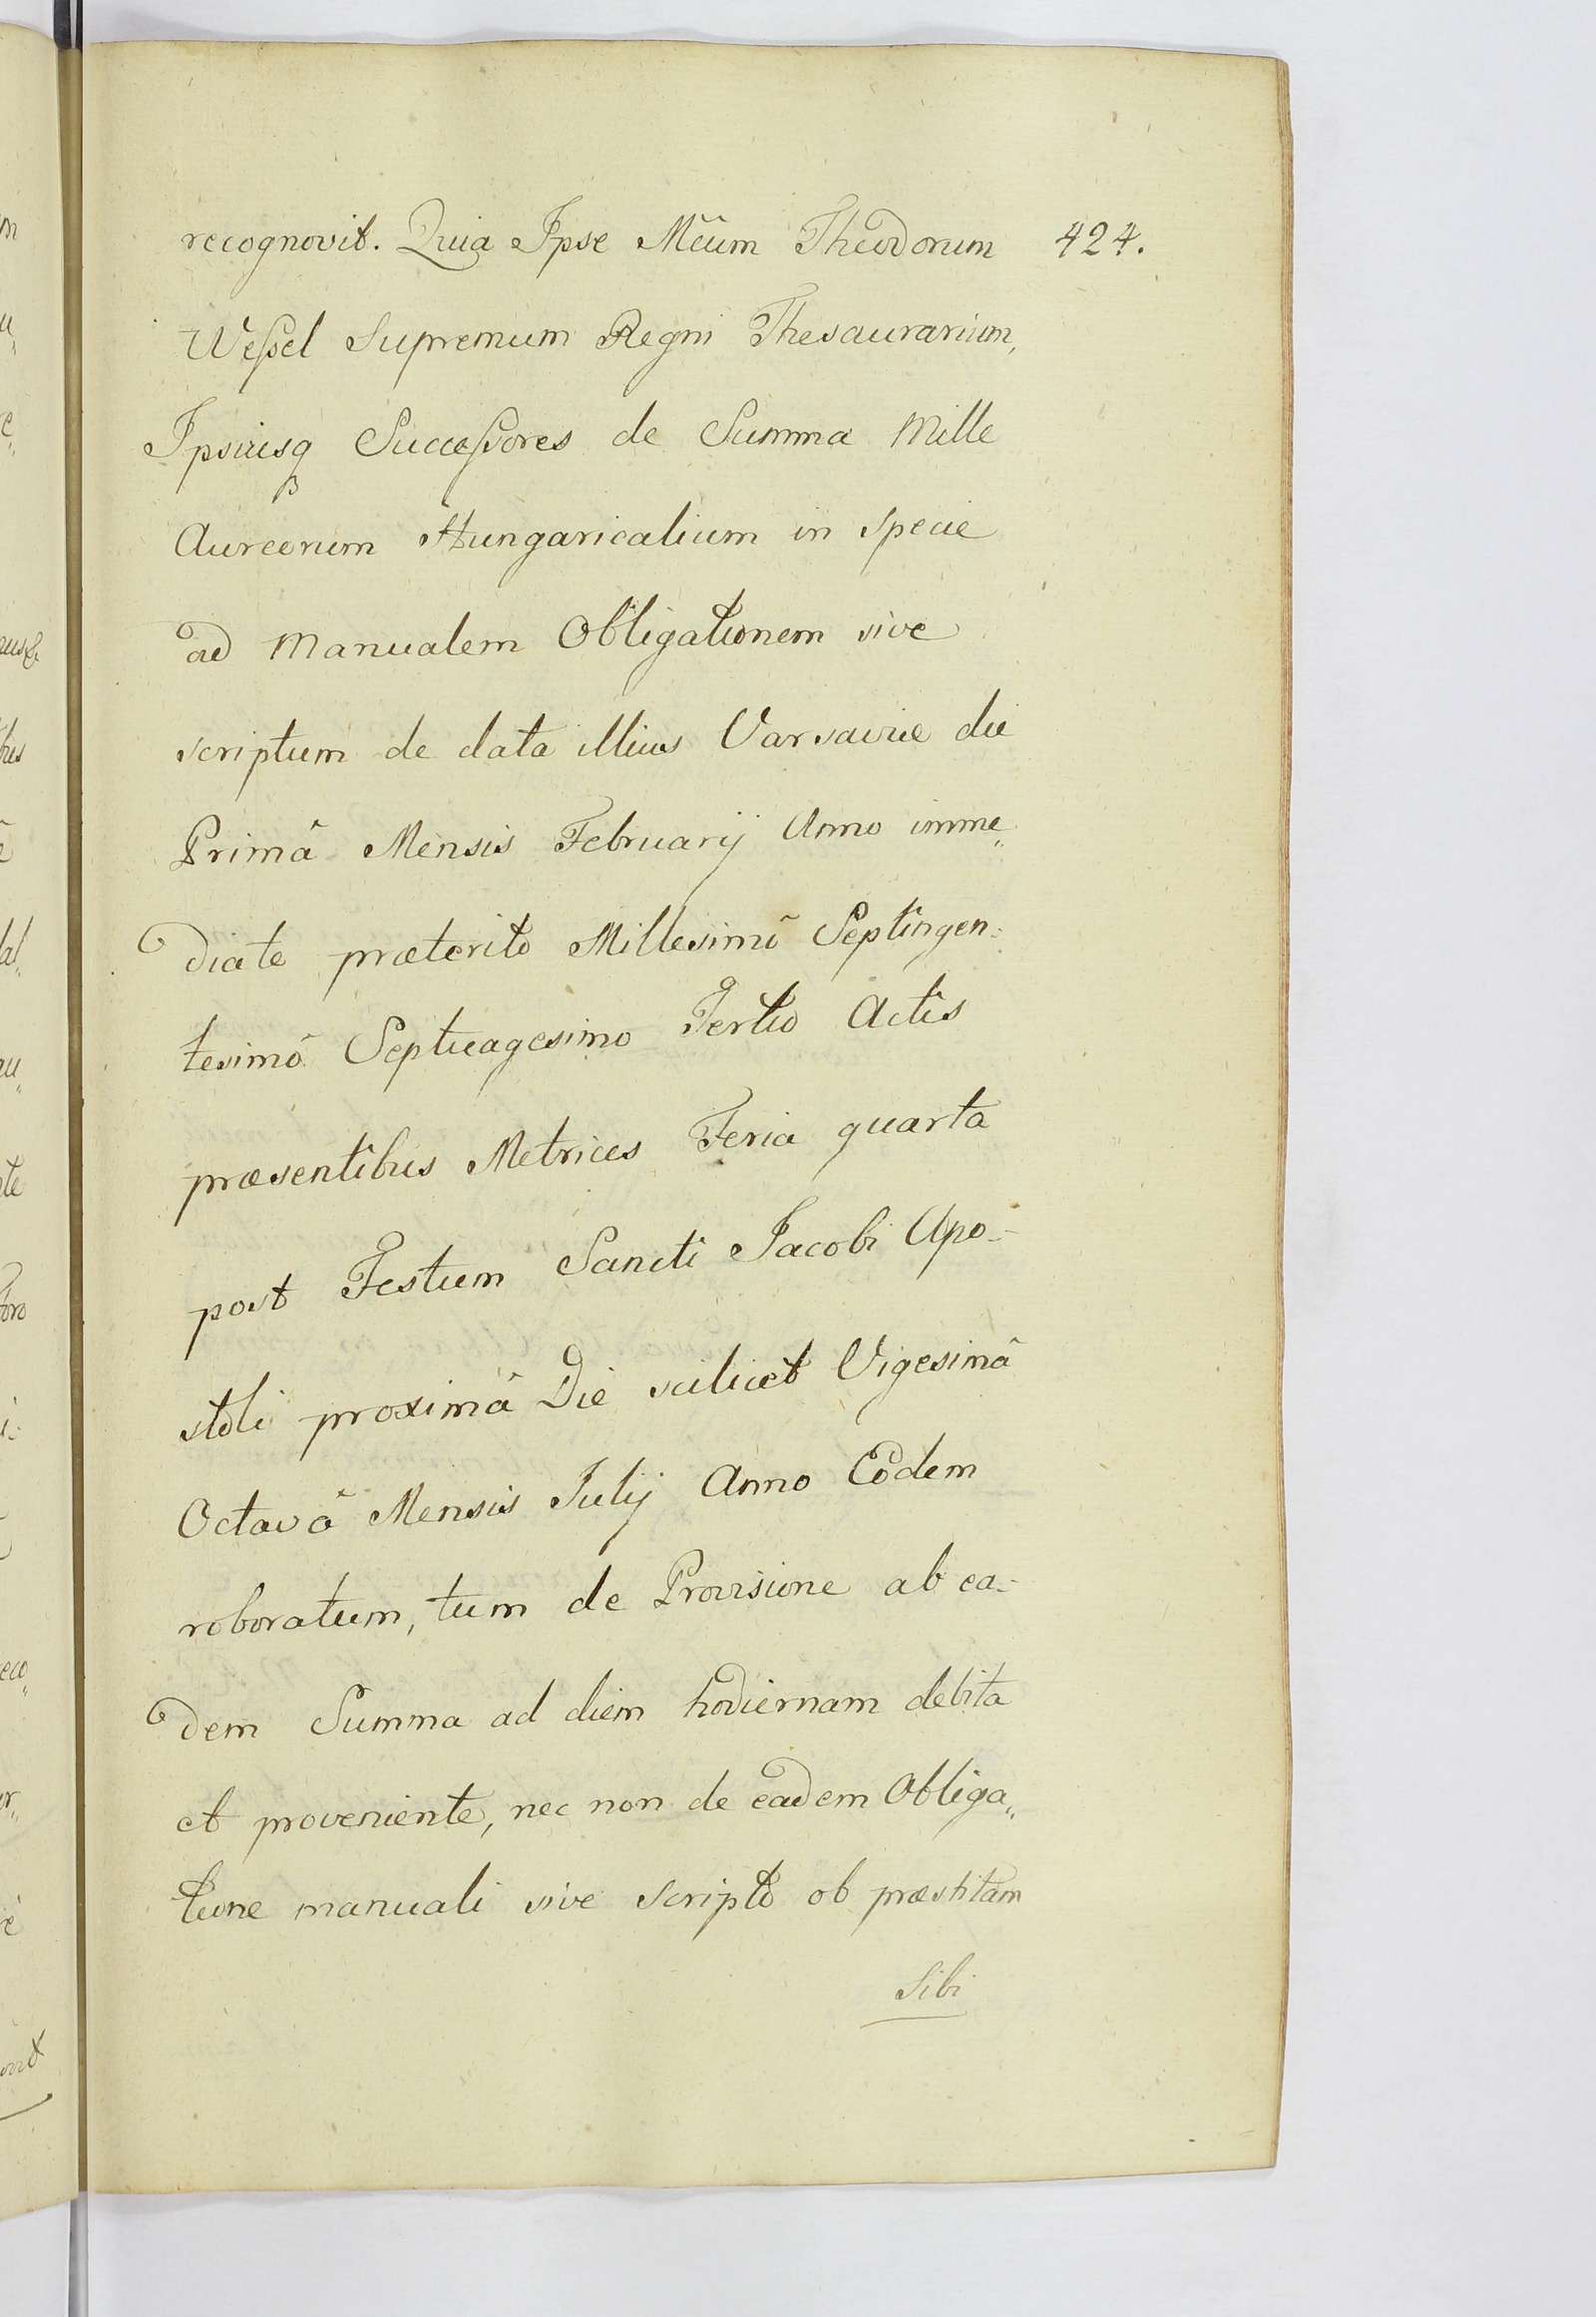 recognovit. Quia Ipse Mcum Theodorum 424.
Weſsel Supremum Regni Thesaurarium,
Ipsiusq Succeſsores de Summa Mille
Aureorum Hungaricalium in specie
ad Manualem Obligationem sive
scriptum de data illius Varsaviæ die
Primâ Mensis Februarij Anno imme„
diate præterito Millesimô Septingen:
tesimô Septuagesimo Tertio Actis
præsentibus Metrices Feria quarta
post Festum Sancti Jacobi Apo-
stoli proximâ Die scilicet Vigesimâ
Octavâ Mensis Julij Anno Eodem
roboratum, tum de Provisione ab ea-
dem Summa ad diem hodiernam debita
et proveniente, nec non de eadem Obliga„
tione manuali sive Scripto ob præstitam
Sibi